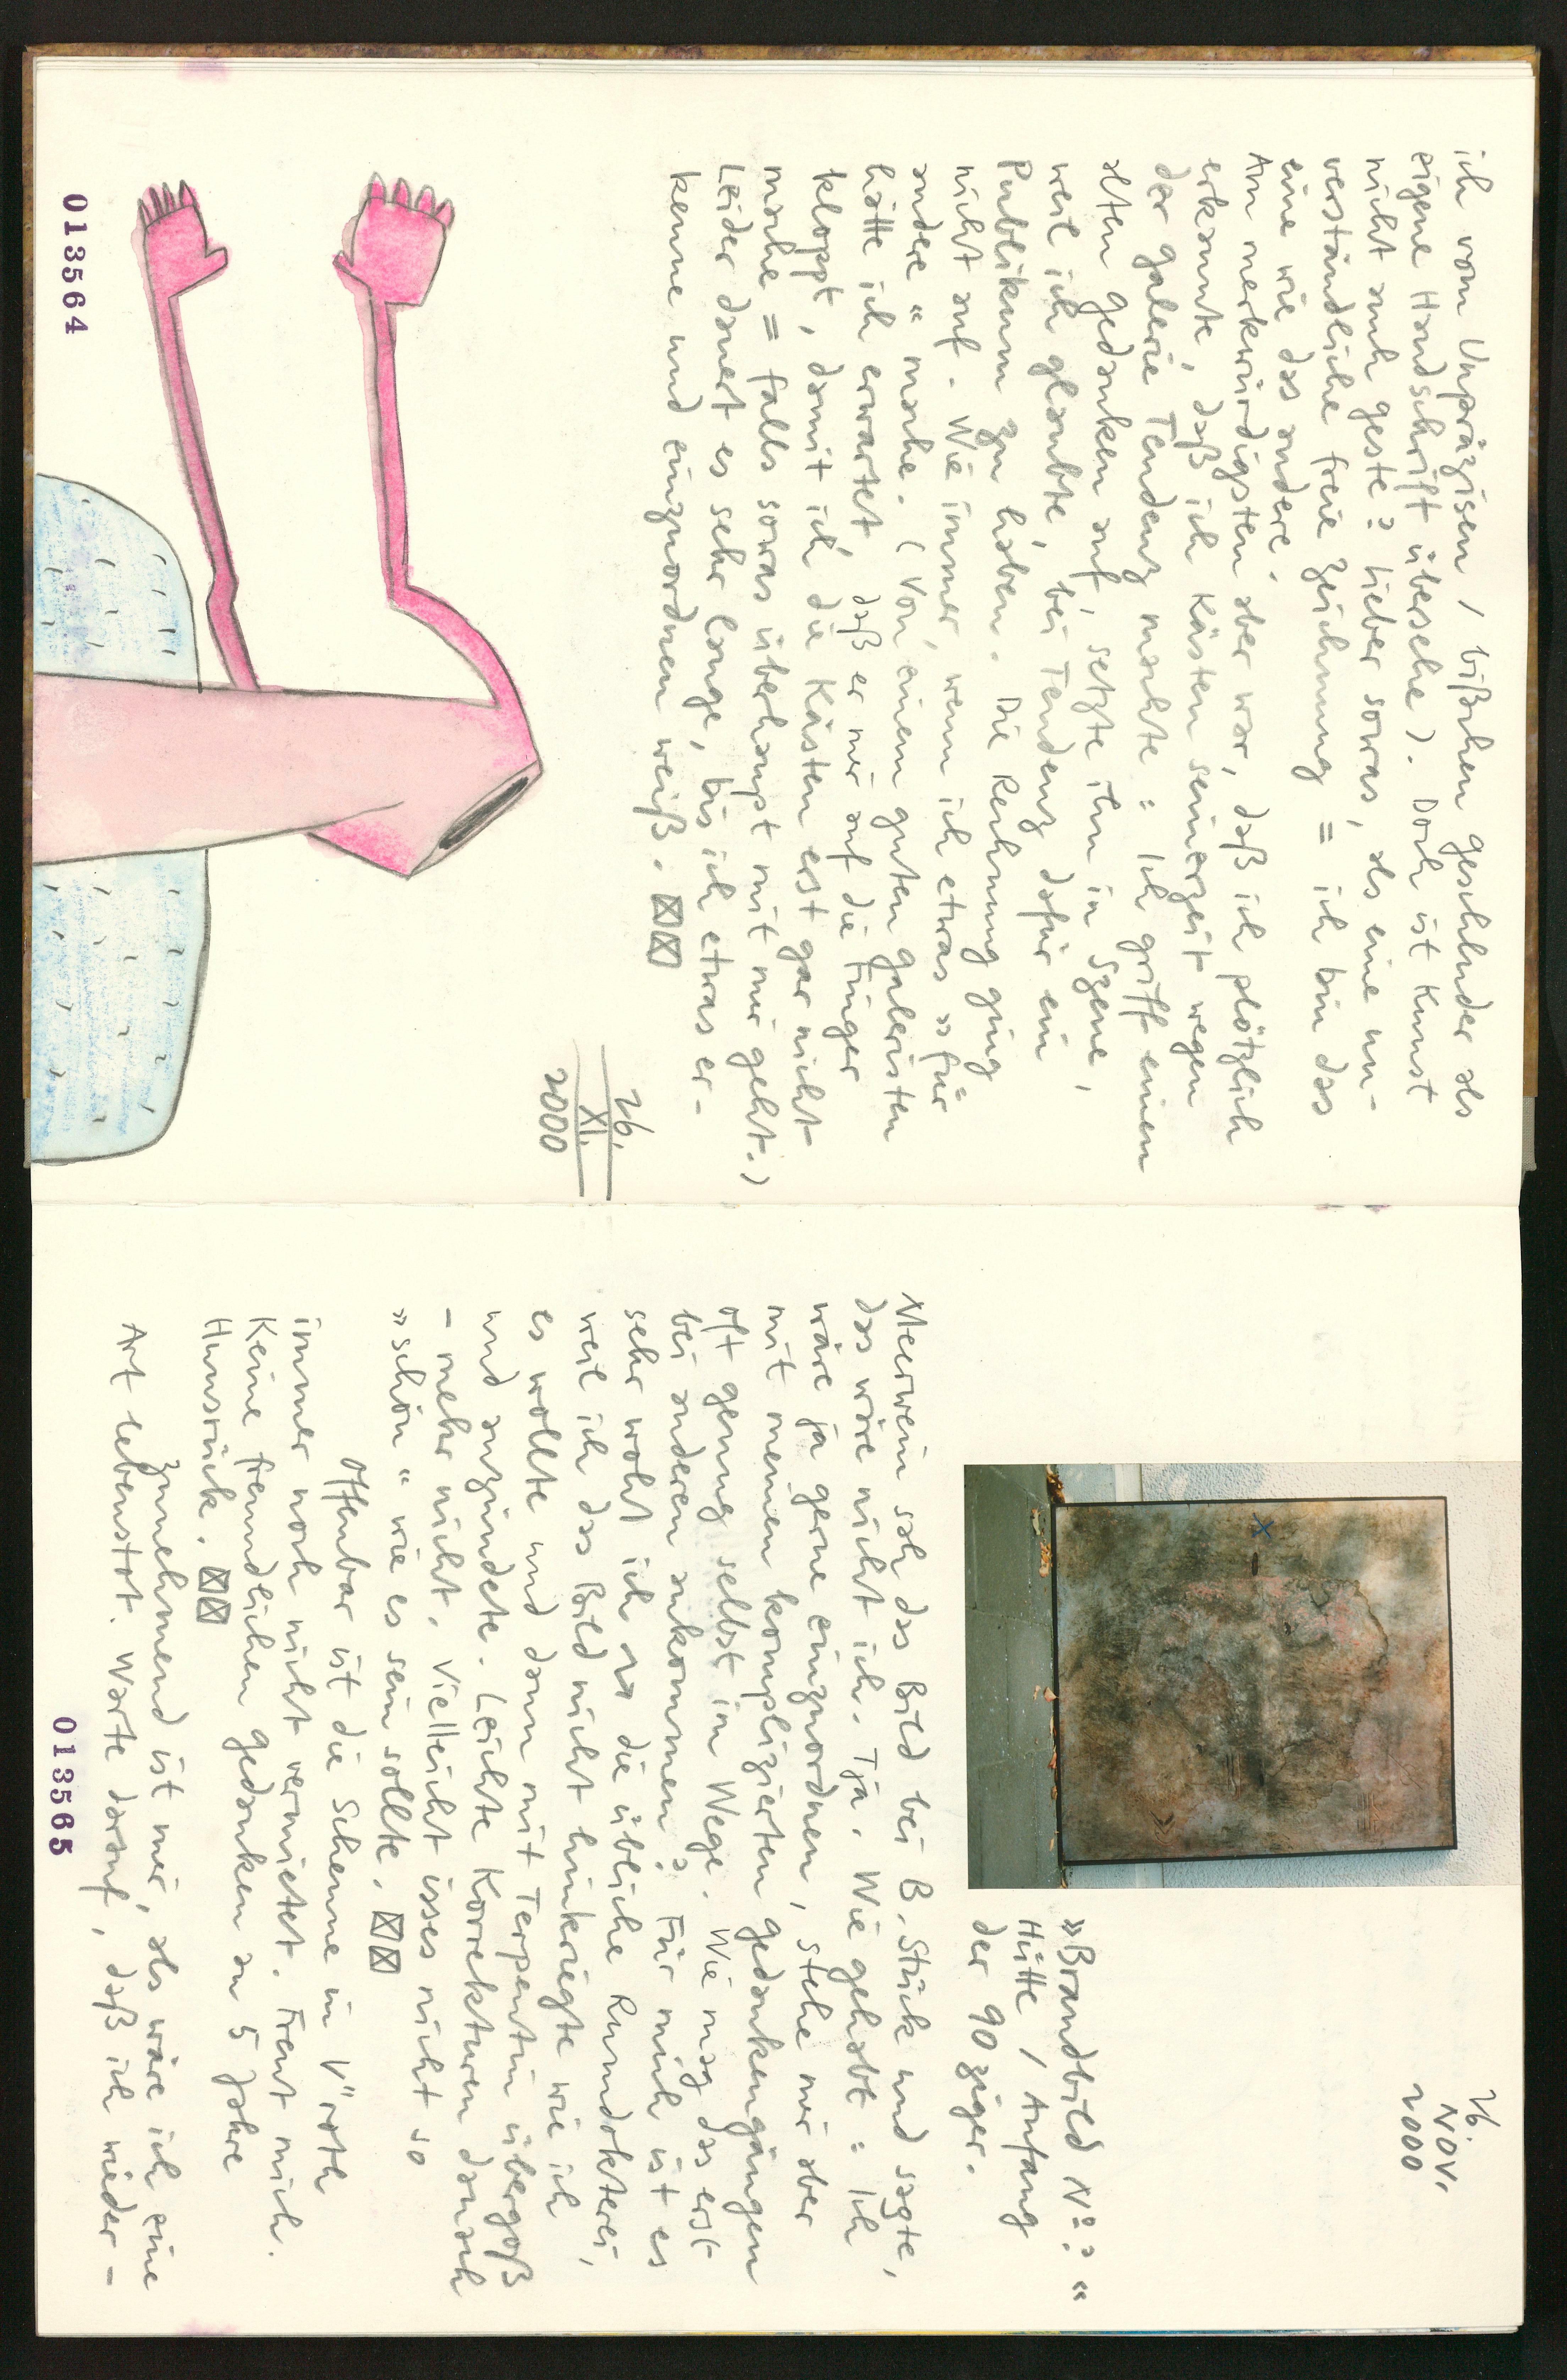 ich vom Unpräzisen / bißchen geschluder als
eigene Handschrift übersehe). Doch ist Kunst
nicht auch geste? Lieber sowas, als eine un-
verständliche freie zeichnung = ich bin das
eine wie das andere.
Am merkwürdigsten aber war, daß ich plötzlich
erkannte, daß ich Kästen seinerzeit wegen
der galerie Tendenz machte: Ich griff einen
alten gedanken auf, setzte ihn in Szene,
weil ich glaubte, bei Tendenz dafür ein
Publikum zu haben. Die Rechnung ging
nicht auf. Wie immer, wenn ich etwas »für
andere« mache. (Von einem guten galeristen
hätte ich erwartet, daß er mir auf die Finger
kloppt, damit ich die Kästen erst gar nicht
mache = falls sowas überhaupt mit mir geht.)
Leider dauert es sehr lange, bis ich etwas er-
kenne und einzuordnen weiß.
26.
XI.
2000
013564
26.
NOV.
2000
»Brandbild N°?«
Hütte / Anfang
der 90ziger.
Meerwein sah das Bild bei B. Stück und sagte,
das wäre nicht ich. Tja. Wie gehabt: Ich
wäre ja gerne einzuordnen, stehe mir aber
mit meinen komplizierten gedankengängen
oft genug selbst im Wege. Wie mag das erst
bei anderen ankommen? Für mich ist es
sehr wohl ich die übliche Rumdokterei,
weil ich das Bild nicht hinkriegte wie ich
es wollte und dann mit Terpentin übergoß
und anzündete. Leichte Korrekturen danach
- mehr nicht. Vielleicht isses nicht so
»schön« wie es sein sollte.
Offenbar ist die Scheune in V"roth
immer noch nicht vermietet. Freut mich.
Keine freundlichen gedanken an 5 Jahre
Hunsrück.
Zunehmend ist mir, als wäre ich eine
Art lebenstot. Warte darauf, daß ich wieder-
013565